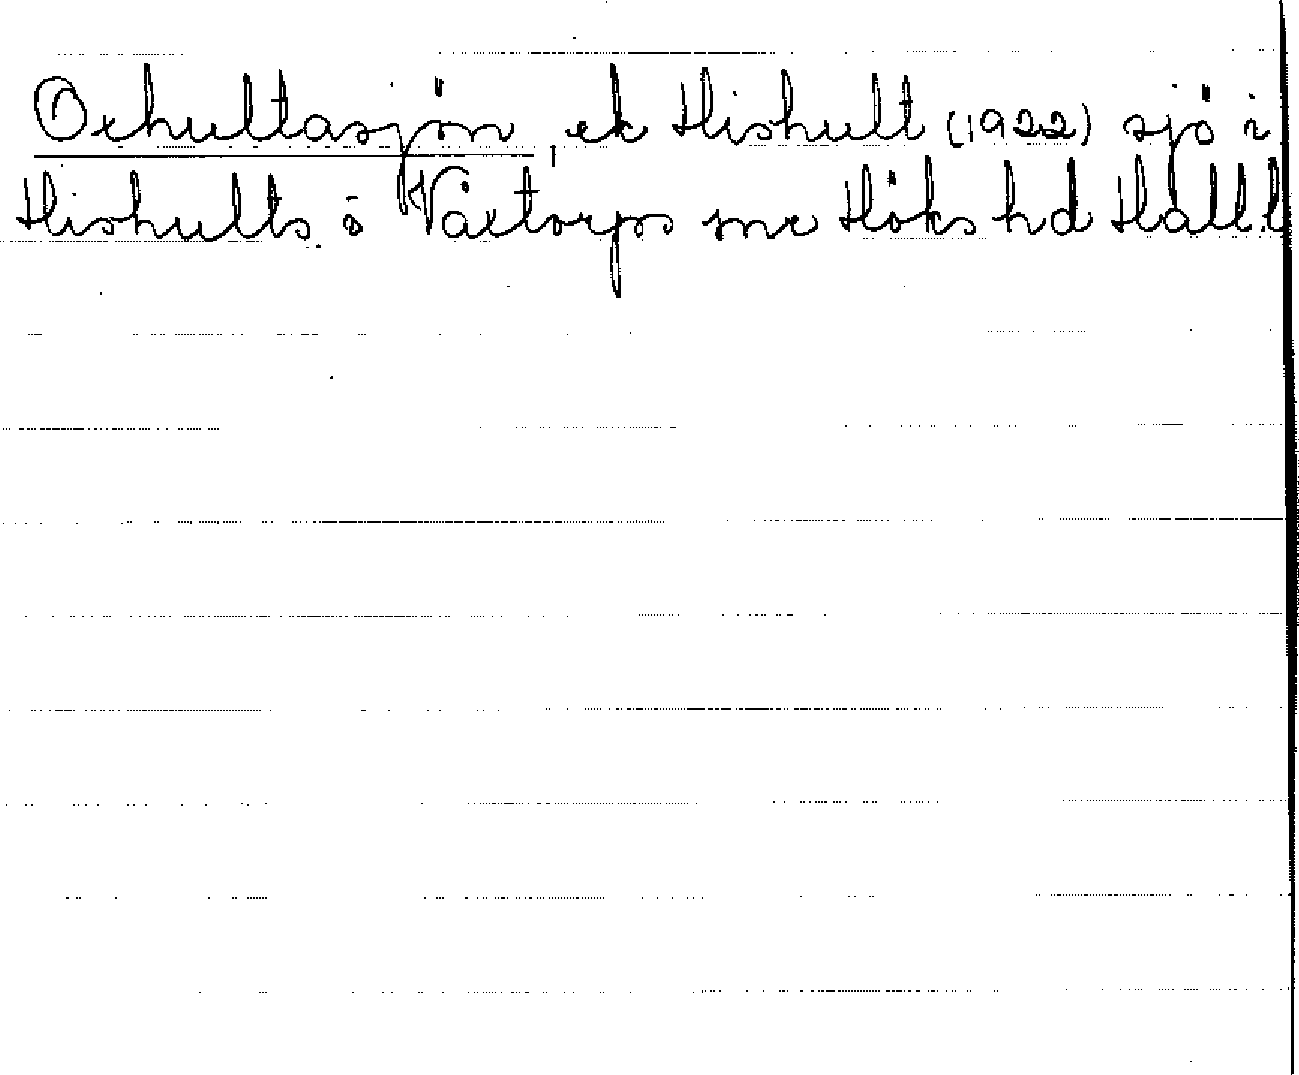 Oxhultasjön, ek Hishult (1922) sjö i
Hishults o Våxtorps snr Höks hd Hall.l